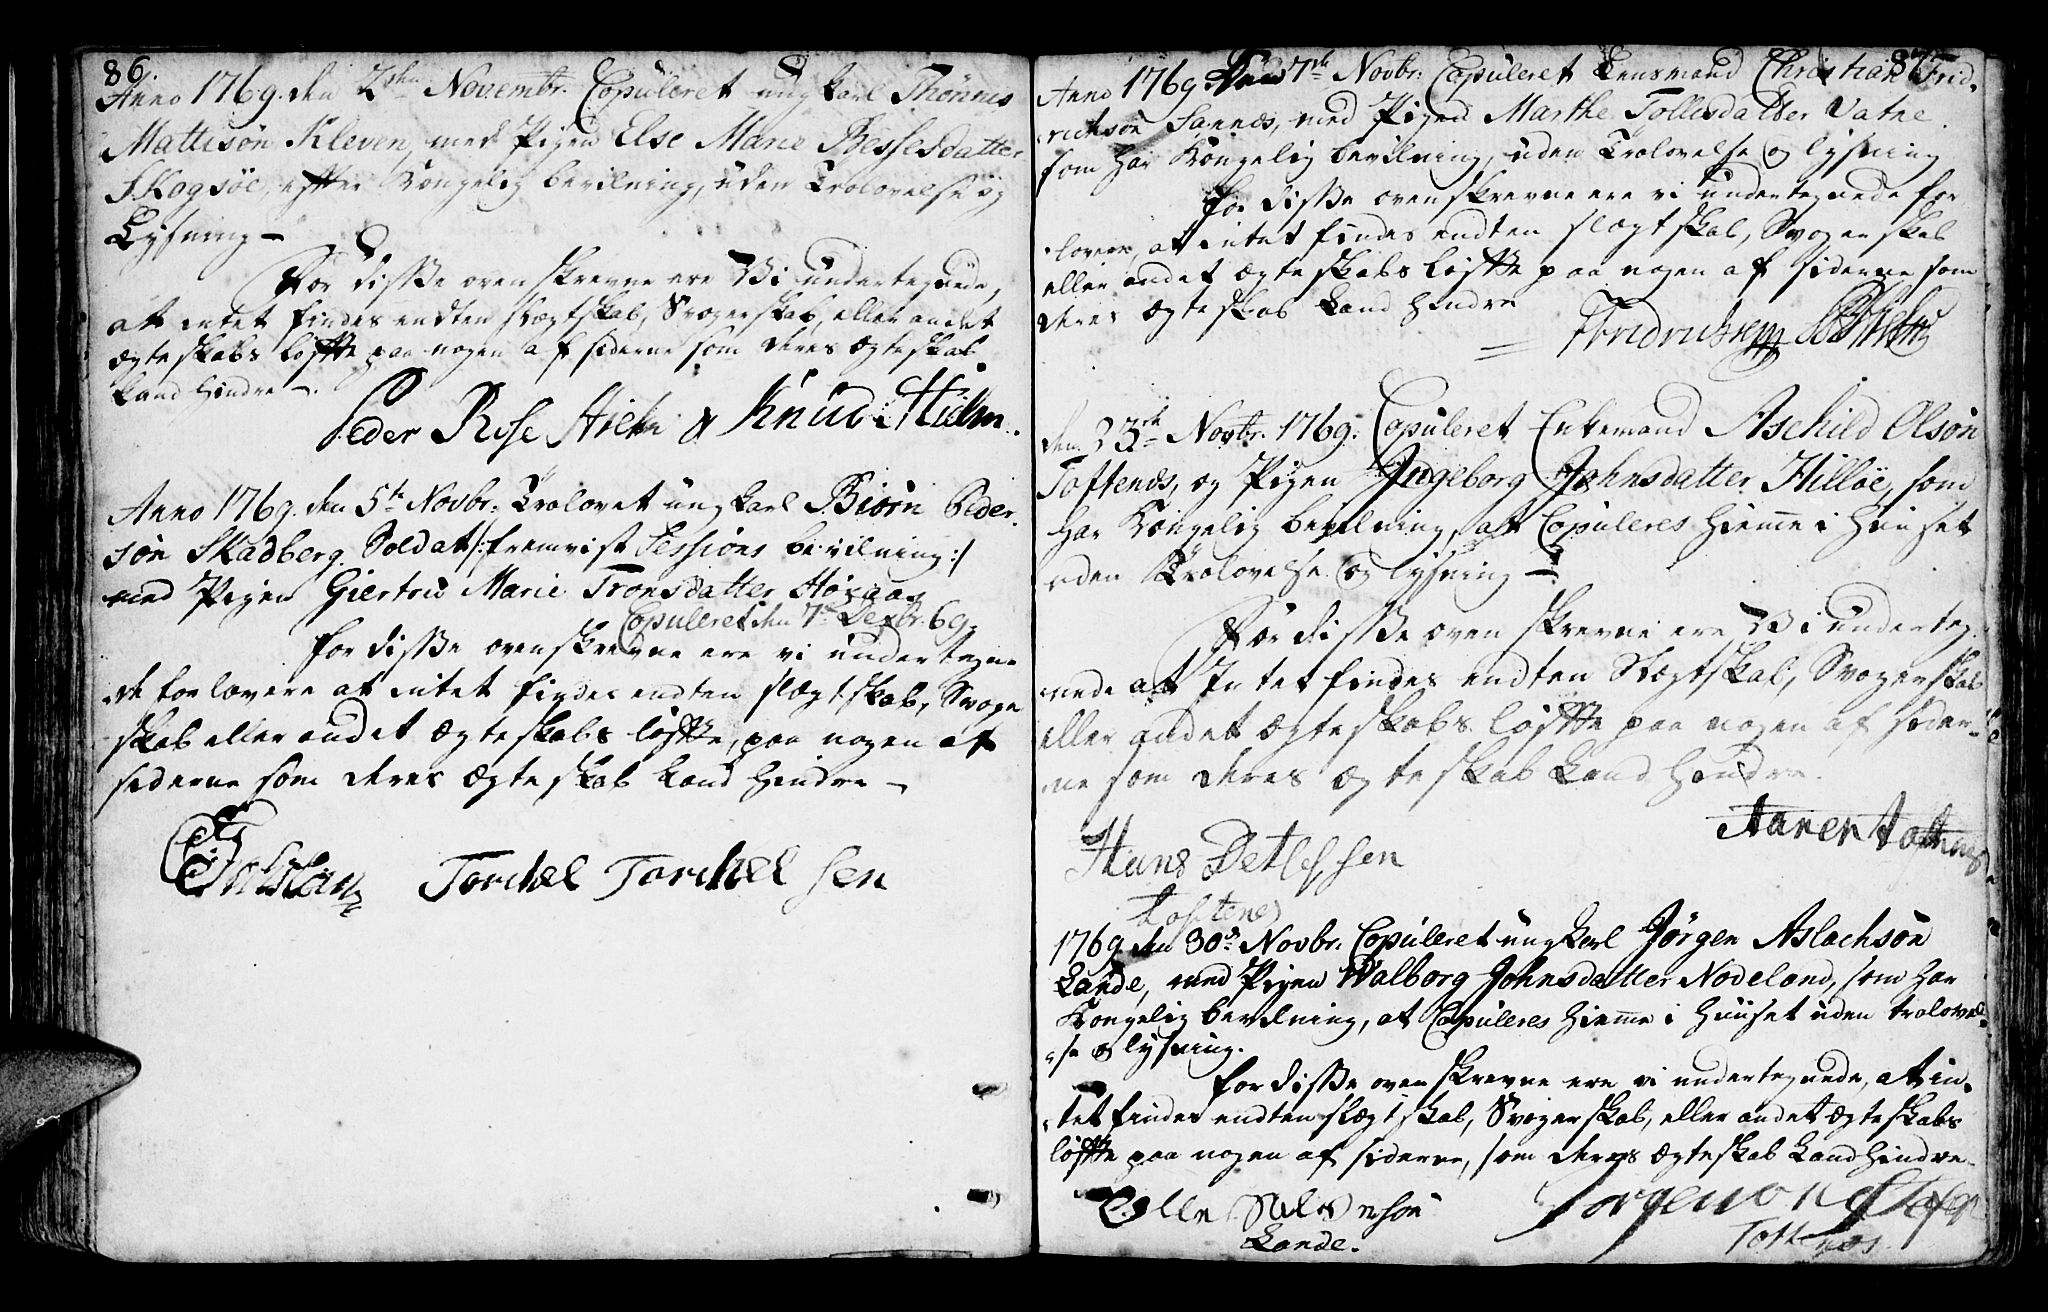 86.
Anno 1769. den 2den Novembr. Copuleret ungkarl Thønnes
Mattisøn Kleven, med Pigen Else Marie Bessesdatter
Skogsøe, efter Kongelig bevilning, uden Trolovelse og
Lysning -
For disse ovenskrevne ere Vi undertegnede,
at intet findes endten slægtskab, Svogerskab, eller andet
ægteskabs løffte paa nogen af siderne som deres ægteskab
kand hindre -.
Peder Rose Knud Holm.
Anno 1769. den 5te Novbr: Trolovet ungkarl Biørn Peder-
søn Skadberg. Soldat /: fremvist Sessions bevilning :/
med Pigen Giertrud Marie Tronsdatter
Copuleret den 7de Decbr. 69.
for disse ovenskrevne ere vi undertegne
de forlovere at intet findes endten slægtskab, Svoger
skab eller andet ægteskabs løffte, paa nogen af
siderne som deres ægteskab kand hindre -
Torchel Torchelsen
87.
Anno 1769 Den 7de Novbr: Copuleret Lensmand Christian Frid-
richsøn Sannes, med Pigen Marthe Tollisdatter Vatne.
som har Kongelig bevilning, uden Trolovelse og lysning
for disse ovenskrevne ere vi undertegnede for
lovere, at intet findes endten slægtskab, Svogerskab
eller andet ægteskabs løffte paa nogen af siderne som
deres ægteskab kand hindre
den 23de Novbr. 1769. Copuleret Enkemand Aschild Olsøn
Toftenes, og Pigen Ingeborg Johnsdatter Hilløe, som
har Kongelig bevilning, at Copuleres hiemme i huuset
uden Trolovelse og lysning -
For disse ovenskrevne ere Vi underteg-
nede at Intet findes endten slægtskab, Svogerskab
eller andet ægteskabs løffte paa nogen af sider-
ne som deres ægteskab kand hindre.
Hans Detlefsen
Aanen Toftnes
Toftenes
1769 den 30de Novbr. Copuleret ungkarl Jørgen Aslachsøn
Lande, med Pigen Walborg Johnsdatter Nodeland, som har
Kongelig bevilning, at Copuleres hiemme i huuset uden trolovel-
se og lysning.
for disse ovenskrevne ere vi undertegnede, at in-
tet findes endten slægtskab, Svogerskab, eller andet ægteskabs
løffte paa nogen af siderne, som deres ægteskab kand hindre.
Olle
Lande.